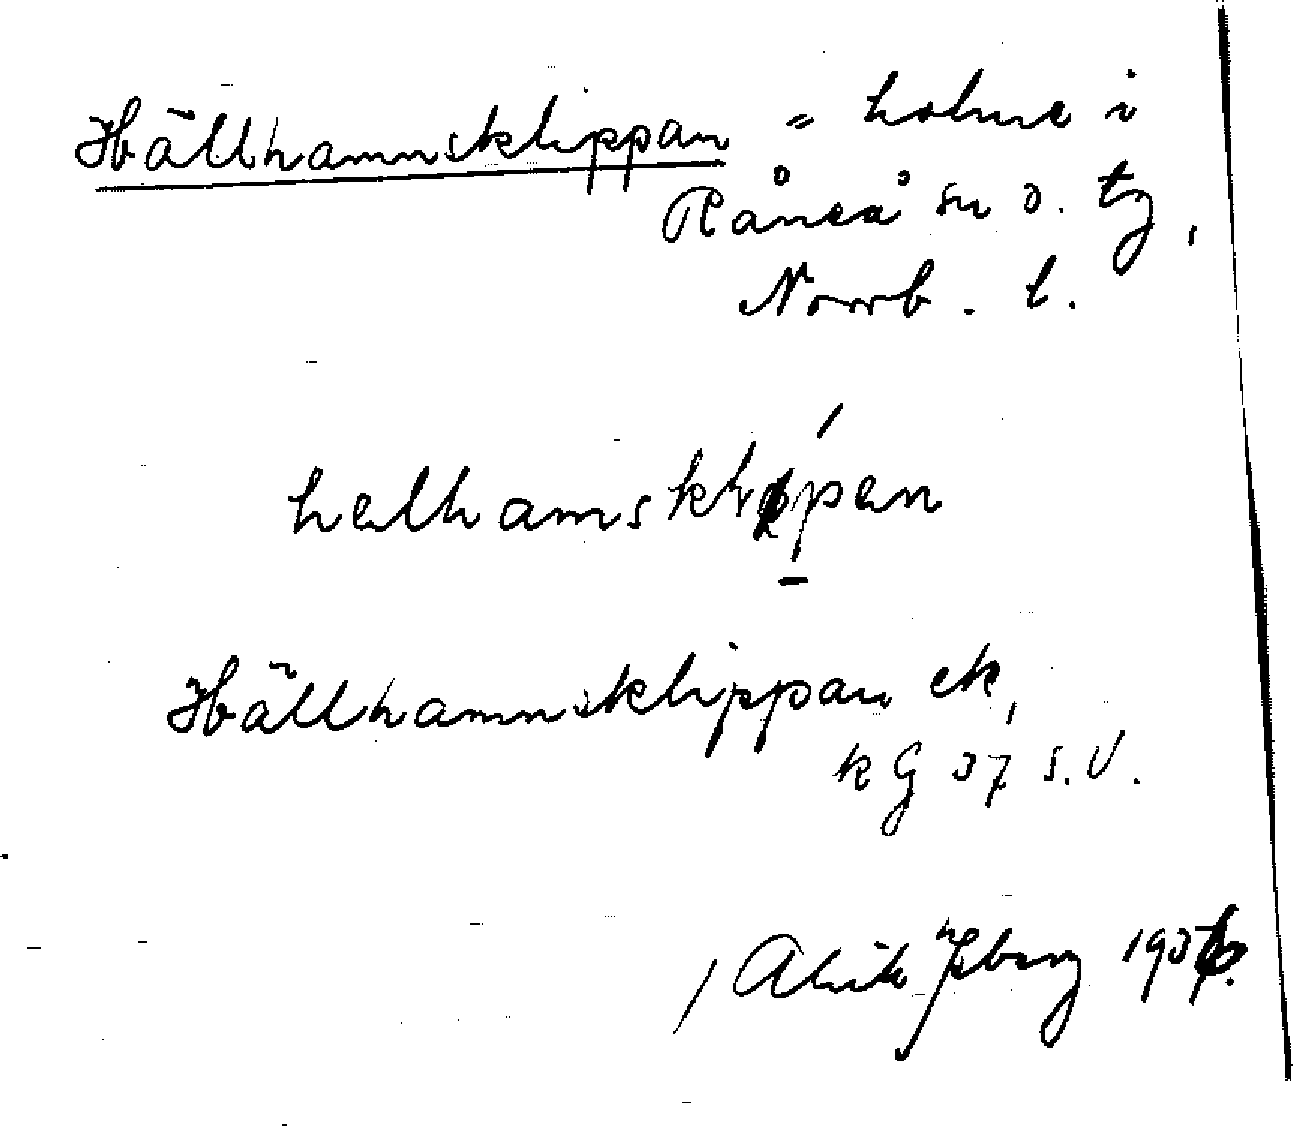 Hällhamnsklippan = holme i
Råneå sn o. tg,
Norrb. l.
helhamsklipen
Hällhamnsklippan ek,
k G 37 s. V.
/ Alrik 1936.